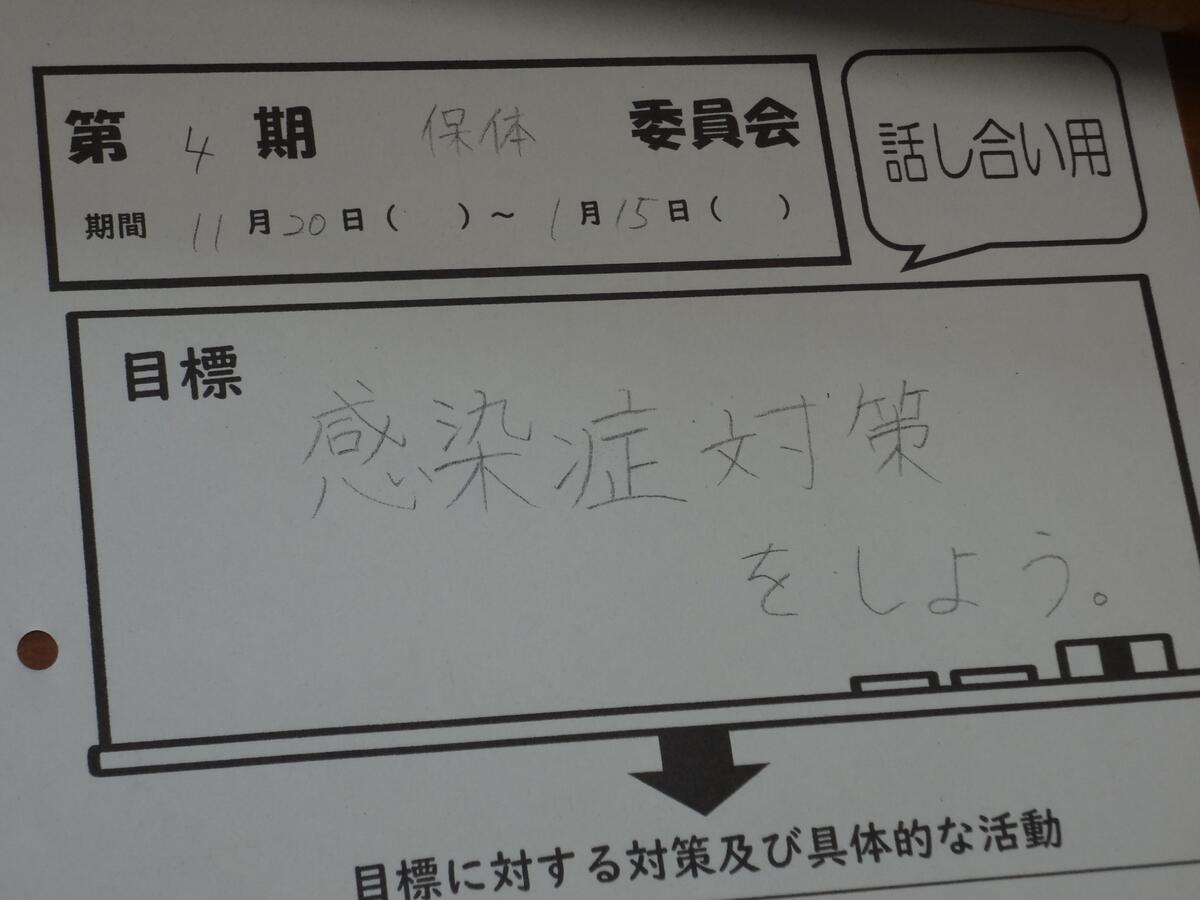 第 4 期 保体 委員会
期間 11月20日( )～1月15日( )
話し合い用
目標
感染症対策
をしよう。
目標に対する対策及び具体的な活動